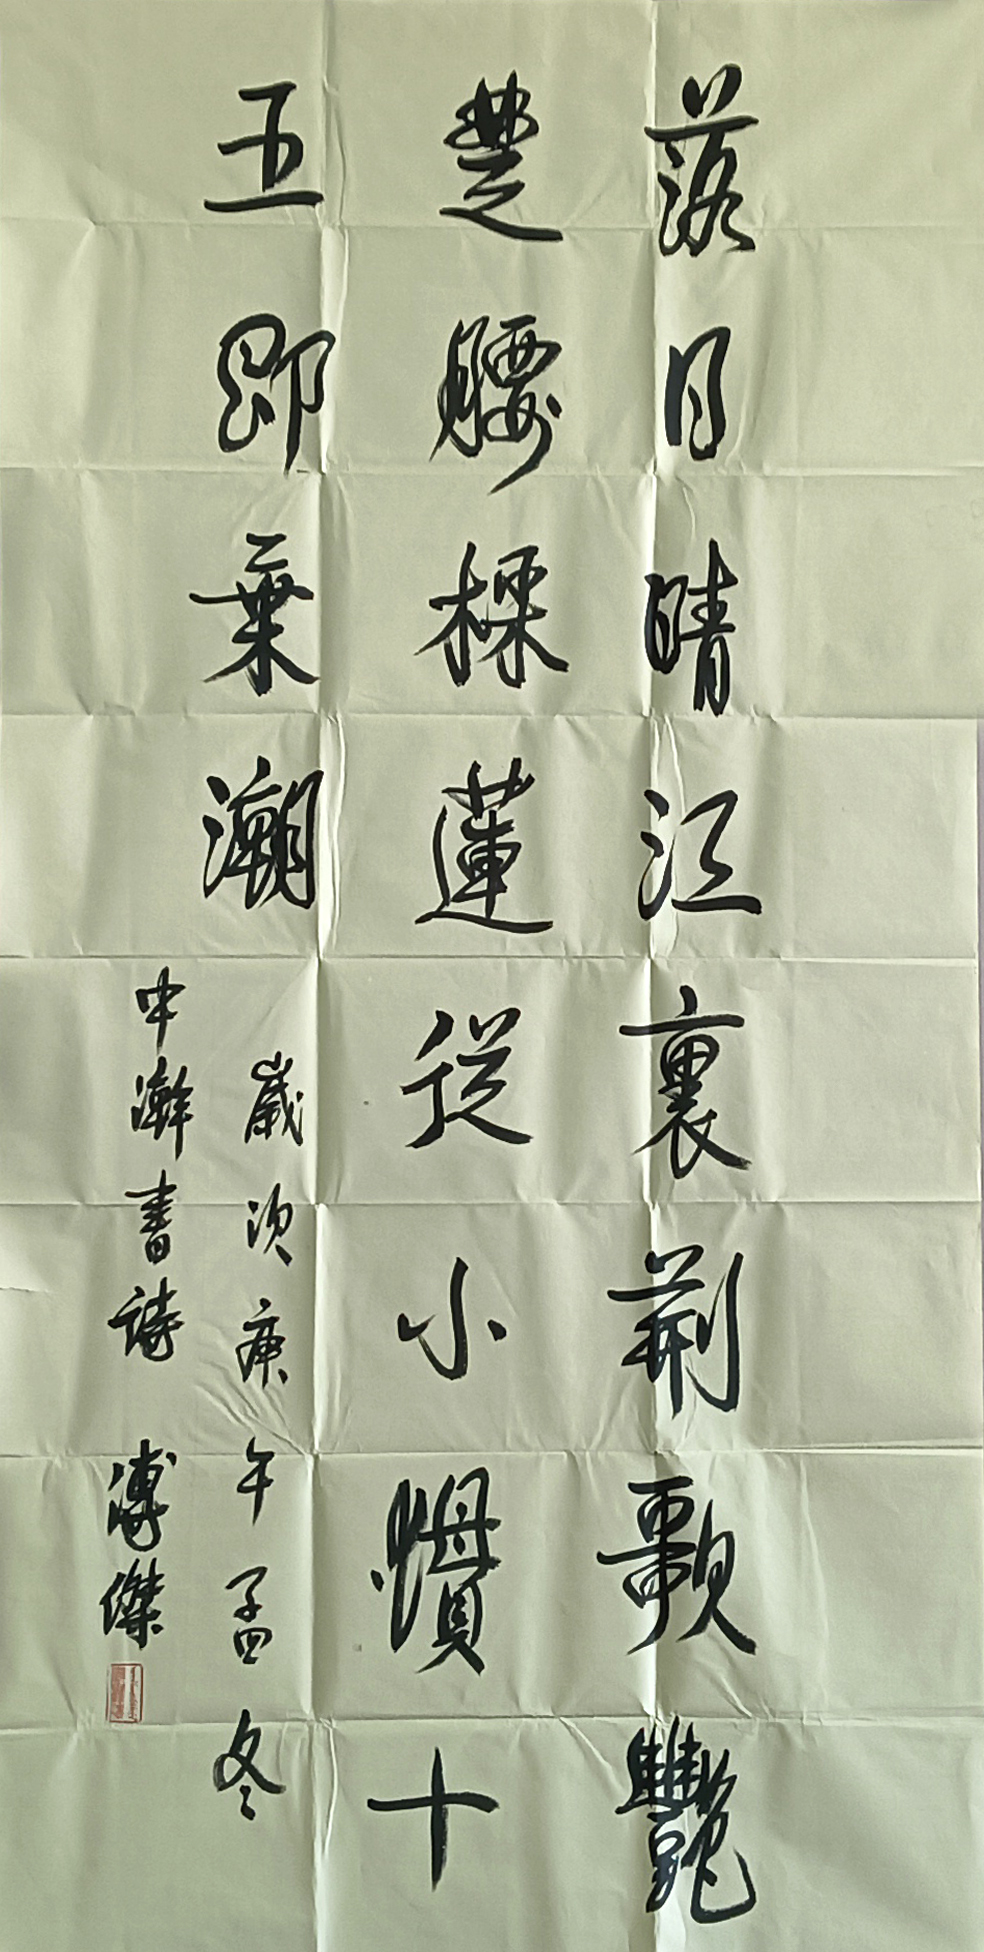 落日晴江裏荆歌艷
楚腰採蓮從小慣十
五即乗潮
歲次庚午孟冬
中瀚書詩 溥傑